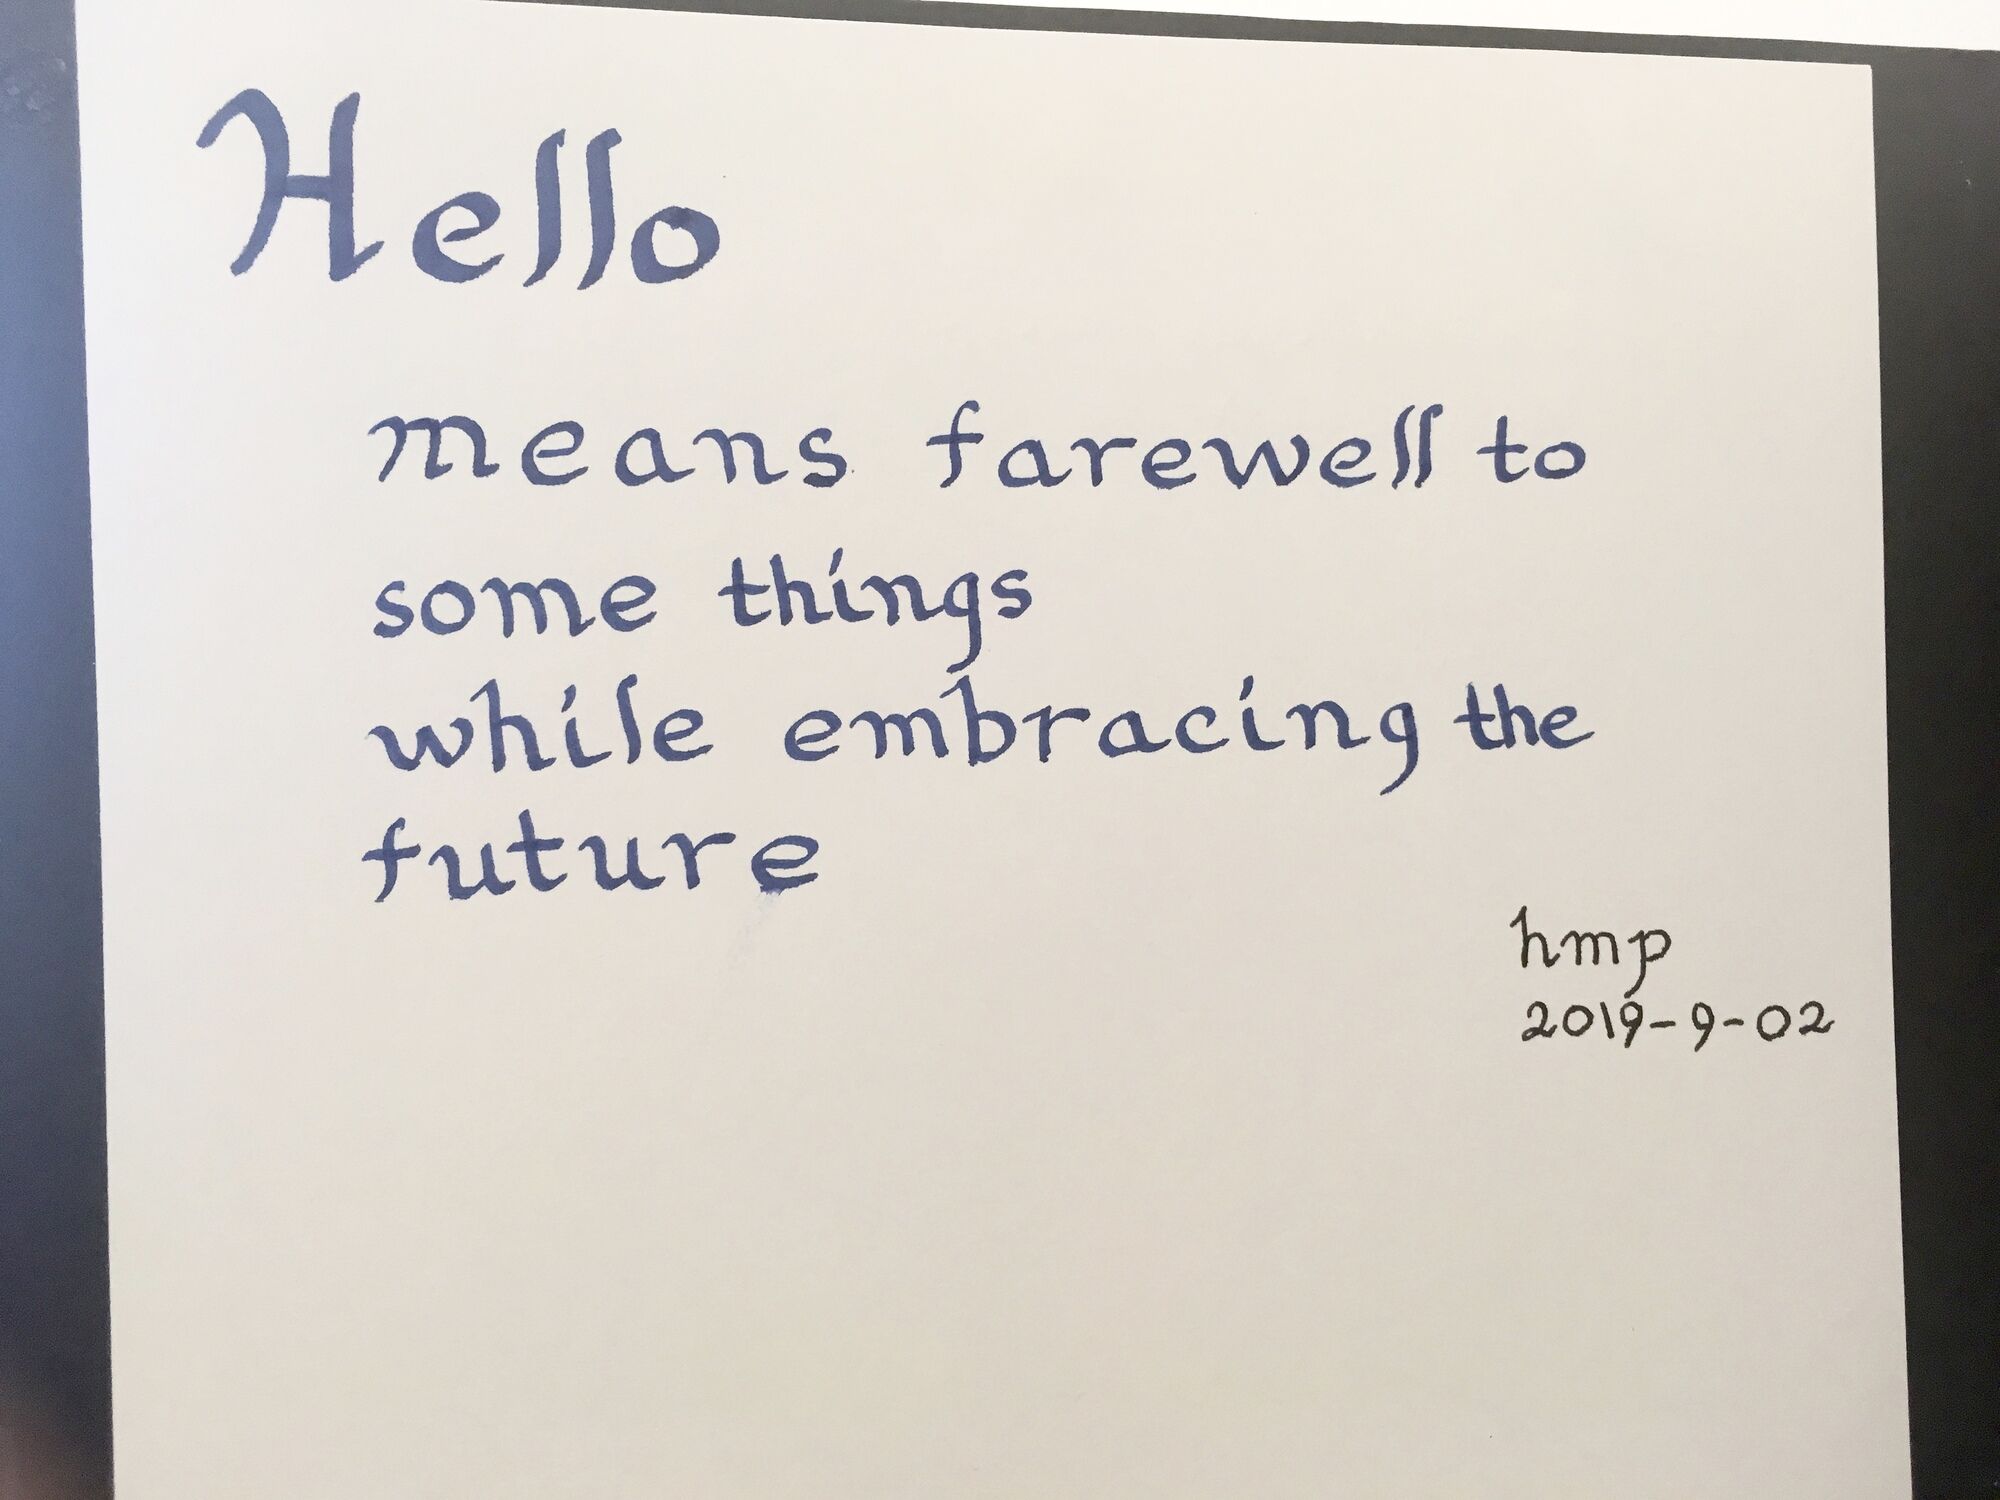 Hello
means farewell to
some things
while embracing the
future
hmp
2019-9-02